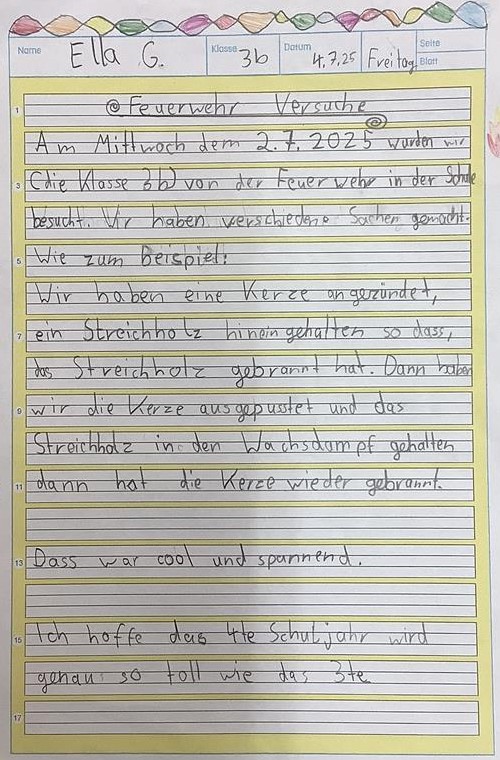 Name Ella G. Klasse 3b Datum 4.7.25 Freitag Seite
Blatt
1 Feuerwehr Versuche
Am Mittwoch dem 2.7.2025 wurden wir
3 (die Klasse 3b) von der Feuerwehr in der Schule
besucht. Wir haben verschiedene Sachen gemacht.
5 Wie zum beispiel:
Wir haben eine Kerze angezündet,
7 ein Streichholz hineingehalten so dass,
das Streichholz gebrannt hat. Dann haben
9 wir die Kerze ausgepusstet und das
Streichholz in den Wachsdampf gehalten
11 dann hat die Kerze wieder gebrannt.
13 Dass war cool und spannend.
15 Ich hoffe das 4te Schuljahr wird
genau so toll wie das 3te
17